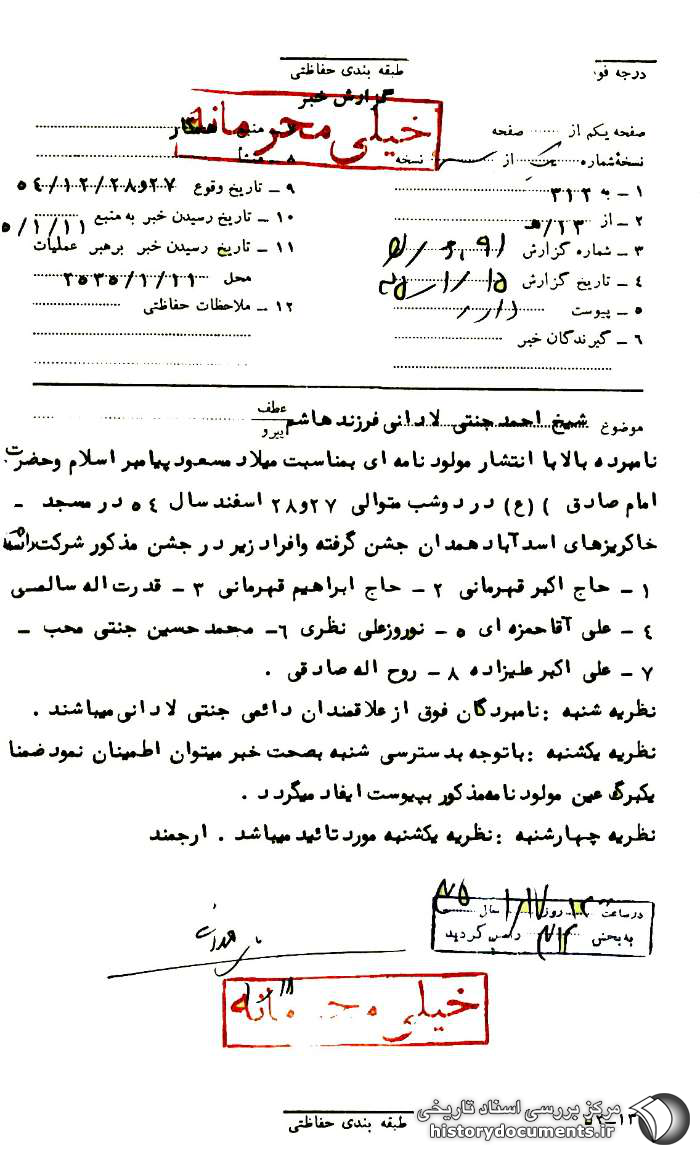 درجه فو
طبقه بندی حفاظتی
گزارش خبر
خیلی محرمانه
صفحه یکم از ...... صفحه
۷ ـ منبع همکار
نسخهٔ شماره یک از ...... نسخه
۸ ـ منشأ
۱ ـ به ۳۱۲
۹ ـ تاریخ وقوع ۲۷و۵٤/۱۲/۲۸
۲ ـ از ۱۳/هـ
۱۰ ـ تاریخ رسیدن خبر به منبع ۵/۱/۱۱
۳ ـ شماره گزارش
۱۱ ـ تاریخ رسیدن خبر برهبر عملیات
٤ ـ تاریخ گزارش
محل ۲۵۳۵/۱/۱۱
۵ ـ پیوست دارد
۱۲ ـ ملاحظات حفاظتی
۶ ـ گیرندگان خبر
موضوع شیخ احمد جنتی لادانی فرزند هاشم
عطف
پیرو
نامبرده بالا با انتشار مولود نامه ای بمناسبت میلاد مسعود پیامبر اسلام وحضرت
امام صادق (ع) در دوشب متوالی ۲۷و۲۸ اسفند سال ۵٤ در مسجد ـ
خاکریزهای اسدآباد همدان جشن گرفته وافراد زیر در جشن مذکور شرکت داشته
۱ ـ حاج اکبر قهرمانی ۲ ـ حاج ابراهیم قهرمانی ۳ ـ قدرت اله سالمی
٤ ـ علی آقا حمزه ای ۵ ـ نوروزعلی نظری ۶ـ محمد حسین جنتی محب ـ
۷ ـ علی اکبر علیزاده ۸ ـ روح اله صادقی .
نظریه شنبه : نامبردگان فوق از علاقمندان دائمی جنتی لادانی میباشند .
نظریه یکشنبه : باتوجه بدسترسی شنبه بصحت خبر میتوان اطمینان نمود ضمنا
یکبرگ عین مولود نامه مذکور بپیوست ایفاد میگردد .
نظریه چهارشنبه : نظریه یکشنبه مورد تائید میباشد . ارجمند
در ساعت ...... روز ...... سال
به بخش ۳۱۲ واصل گردید
خیلی محرمانه
طبقه بندی حفاظتی
مرکز بررسی اسناد تاریخی
historydocuments.ir